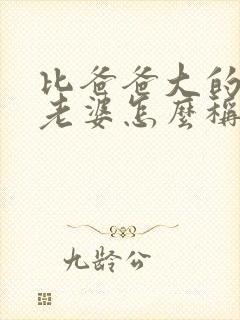 比爸爸大的
老婆怎麼稱
九龄公